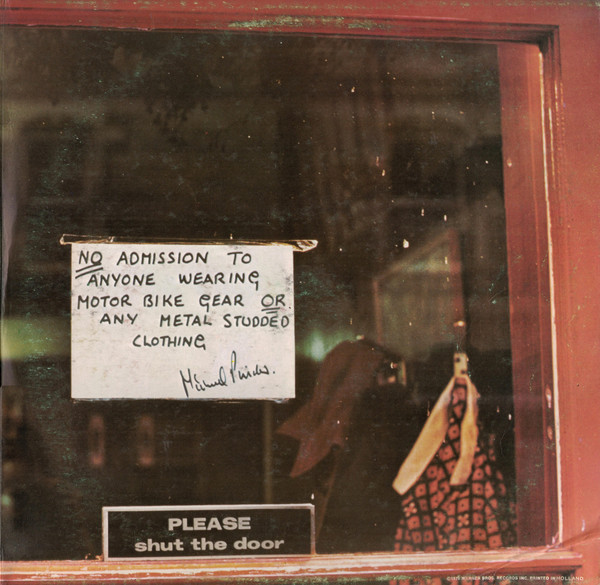 NO ADMISSION TO
ANYONE WEARING
MOTOR BIKE GEAR OR
ANY METAL STUDDED
CLOTHING
PLEASE
shut the door
WARNER BROS. RECORDS INC. PRINTED IN HOLLAND